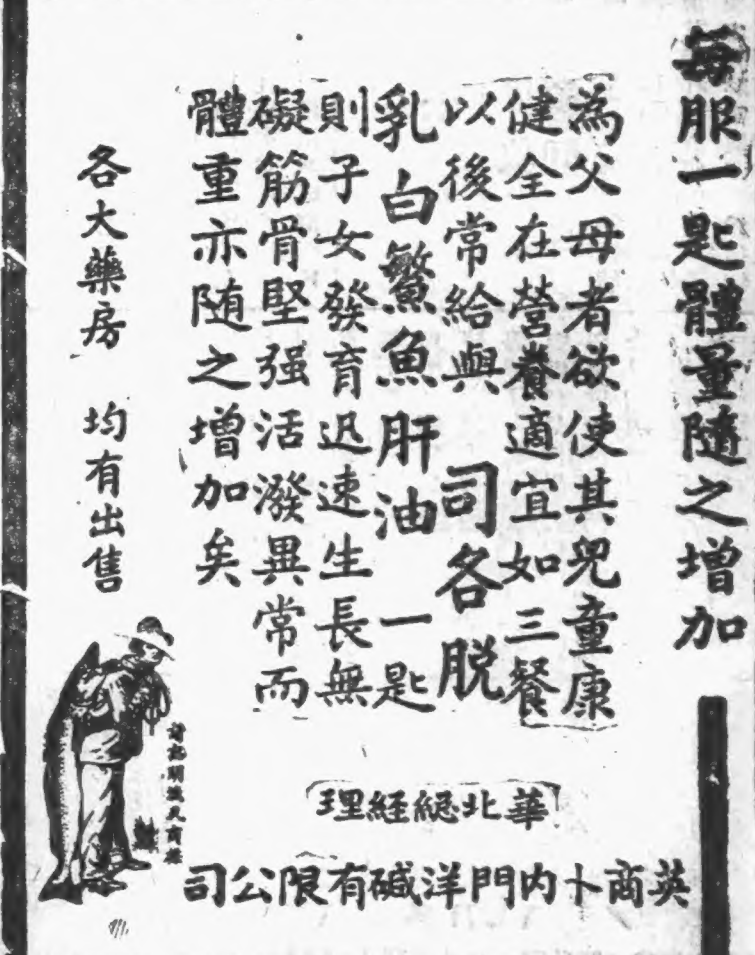 每服一匙體量隨之增加
為父母者欲使其兒童康
健全在營養適宜如三餐
以後常給與 司各脱
乳白鰵魚肝油 一匙
則子女發育迅速生長無
礙筋骨堅强活潑異常而
體重亦随之增加矣
各大藥房 均有出售
請認明漁夫商標
華北總經理
英商卜内門洋碱有限公司